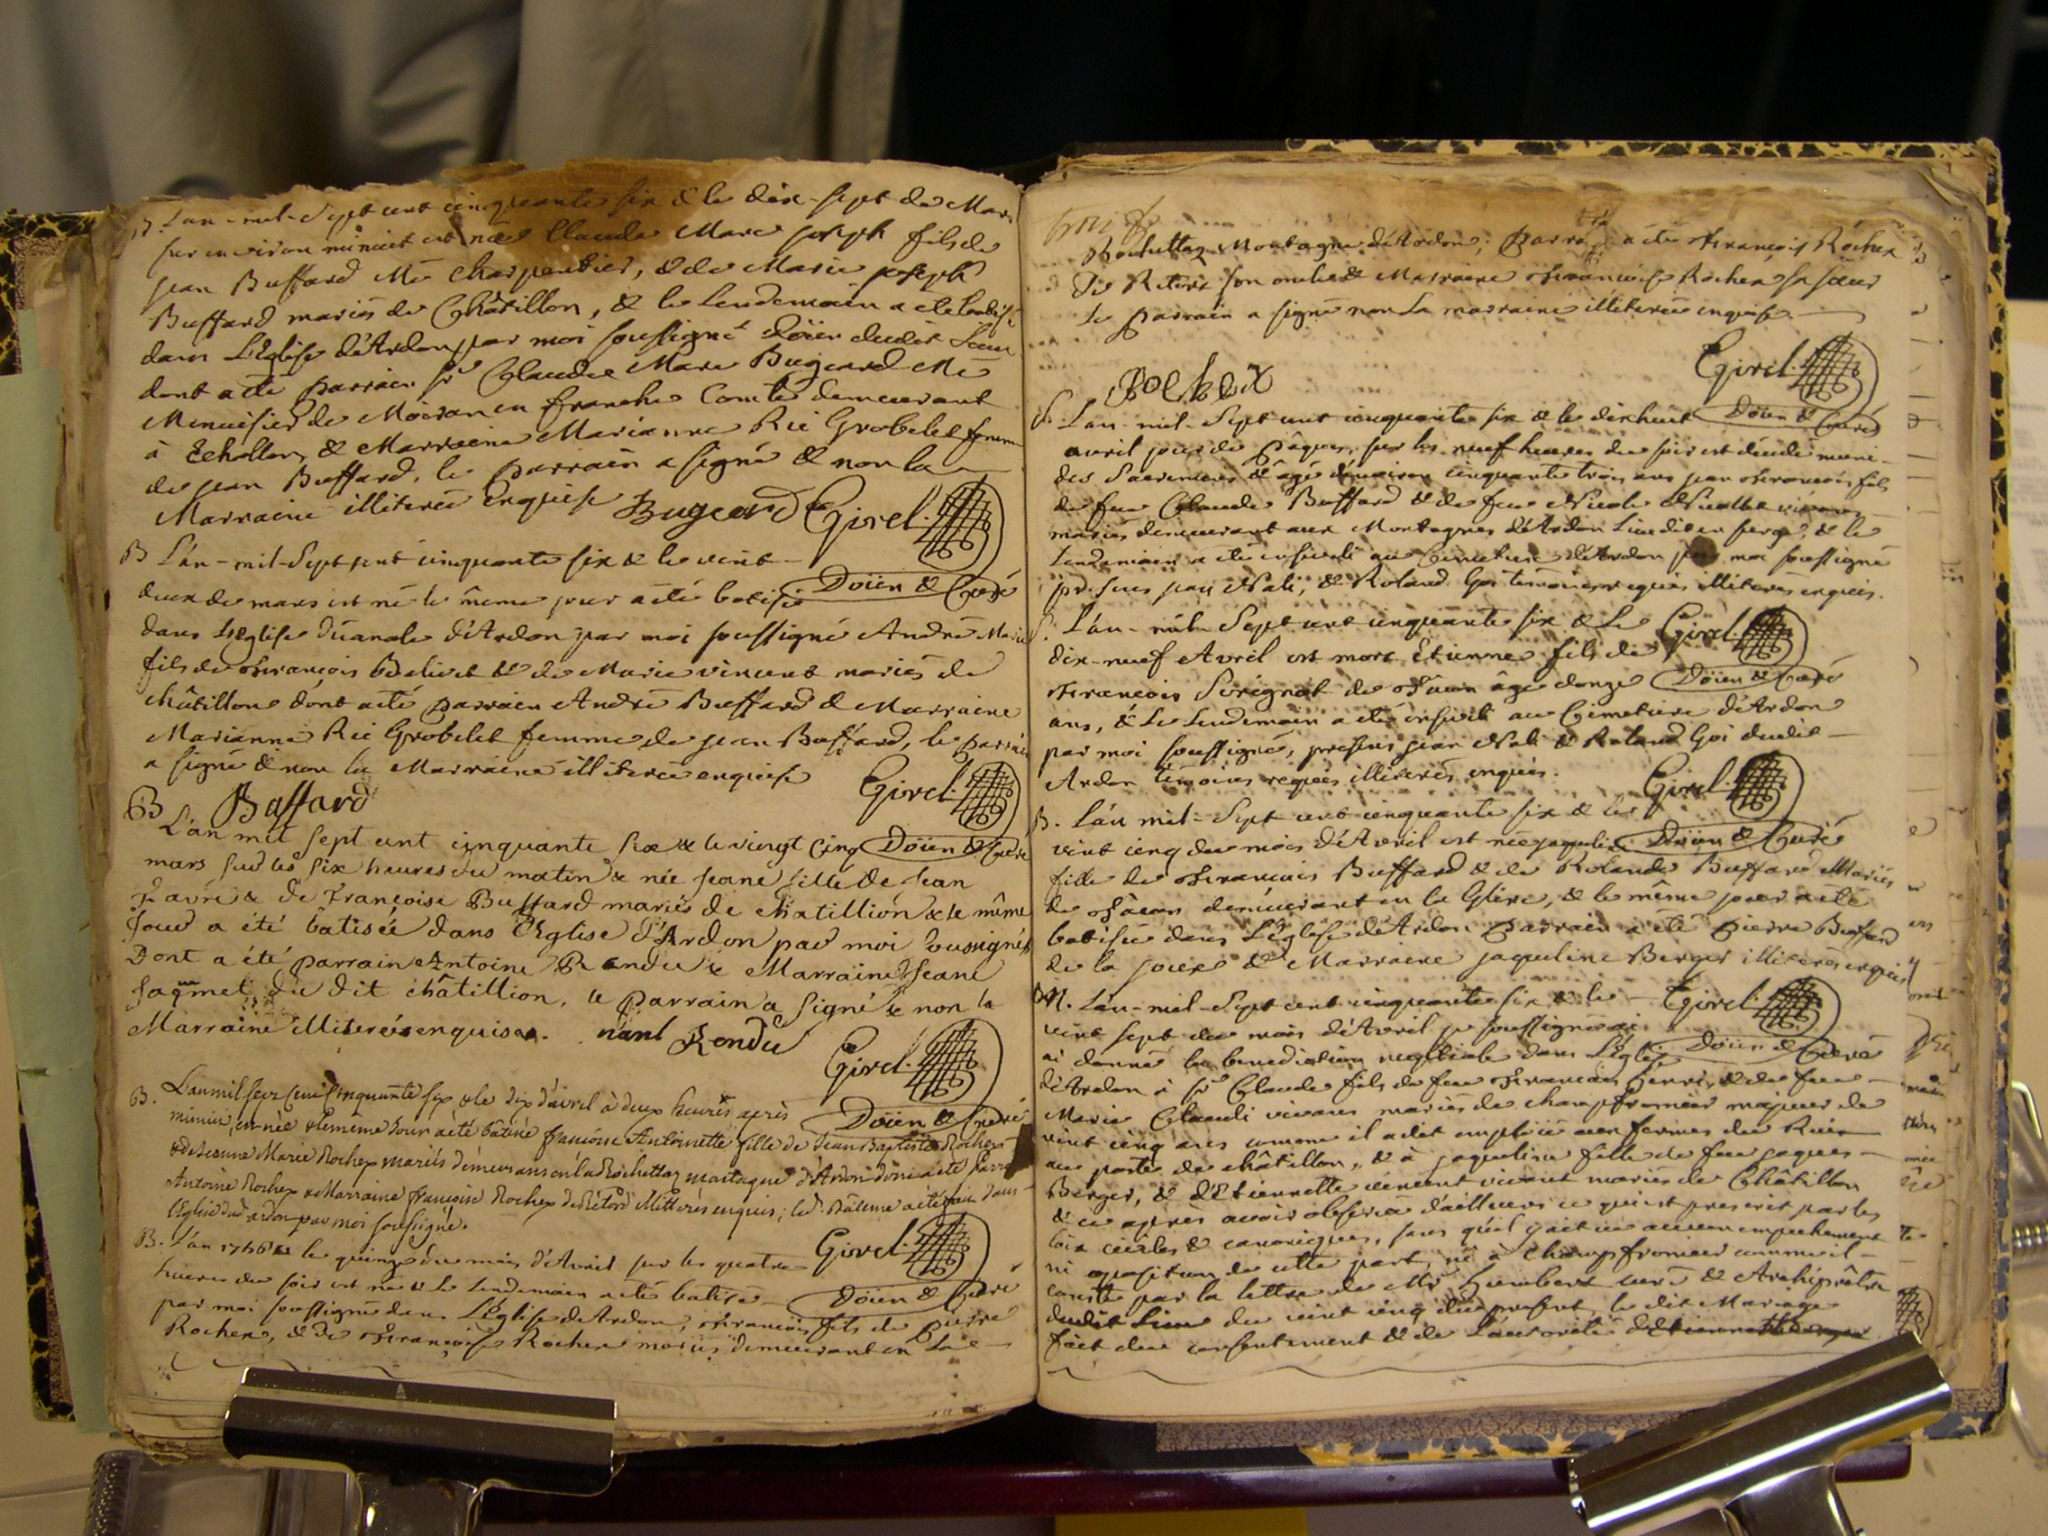 B. L'an-mil-Sept cent cinquante six & le dix-sept de Mars
sur environ minuit est née Claude Marc joseph fils de
jean Buffard Me Charpentier, & de Marie joseph
Buffard mariés de Châtillon, & le lendemain a été batisé
dans L'Eglise d'Ardon par moi soussigné Doïen dudit Lieu
dont a été parrain sr Claude Marc Bugeard Me
Menuisier de Moiran en franche Comté demeurant
à Echallon, & Marraine Marianne Rei Grobelet femme
de jean Buffard, le parrain a signé & non la
Marraine illiterée enquise Bugeard Girel.
Doïen & Curé
B L'an-mil-Sept cent cinquante six & le vint
deux de mars est né le même jour a été batisé
dans L'Eglise décanale d'Ardon par moi soussigné André Marie
fils de François & de Marie vincent mariés de
châtillon dont a été parrain André Buffard & Marraine
Marianne Rei Grobelet femme de jean Buffard, le parrain
a signé & non la Marraine illiterée enquise Girel.
Buffard
Doïen & Curé
B L'an mil sept cent cinquante six & le vingt cinq
mars sur les six heures du matin & née jeane fille de jean
favre & de Françoise Buffard mariés de châtillion & le même
jour a été bâtisée dans l'Eglise d'Ardon par moi soussigné
Dont a été parrain Antoine Rendu & Marraine Jeane
jaqmet du dit châtillion, le parrain a signé & non la
Marraine illiterés enquise. nant Rendu
Girel.
Doïen & Curé
B. L'an mil sept cent cinquante six & le dix d'avril à deux heures après
minuit, est née & le meme jour a été bâtisée françoise Antoinette fille de Jean Baptiste Rochex
& de Jeanne Marie Rochex mariés demeurans en la Rochettaz montagne d'Ardon dont a été parrain
Antoine Rochex & Marraine françoise Rochex de Rétord illiterés enquis; le d. Bâteme a été fait dans
l'Eglise dud. ardon par moi soussigné.
Girel.
Doïen & Curé
B. L'an 1756 & le quinze du mois d'Avril sur les quatre
heures du soir est né & le lendemain a été batisé
par moi soussigné dans L'Eglise d'Ardon, François fils de Pierre
Rochex, & de Françoise Rochex mariés demeurant en la
Rochettaz Montagne d'Ardon, Parrain a été François Rochex
De Retord son oncle & Marraine Françoise Rochex sa sœur
Le parrain a signé non La marraine illiterée enquise
Girel.
Rochex
Doïen & Curé
S. L'an-mil-Sept cent cinquante six & le dixhuit
avril jour de Pâques, sur les neuf heures du soir est décédé muni
des Sacremens & âgé d'environ cinquante trois ans jean François fils
de feu Claude Buffard & de feu Nicole vivans
mariés demeurant aux Montagnes d'Ardon Lieudit en & le
lendemain a été enseveli au Cimetiere d'Ardon par moi soussigné
presens jean Nali, & Roland Goi temoins requis illiterés enquis.
Girel.
Doïen & Curé
S. L'an-mil-Sept cent cinquante six & Le
dix-neuf Avril est mort Etienne fils de
François de âgé d'onze
ans, & Le Lendemain a été enseveli au Cimetiere d'Ardon
par moi soussigné, presens jean Nali & Roland Goi dudit
Ardon temoins requis illiterés enquis.
Girel.
Doïen & Curé
B. L'an mil-Sept cent cinquante six & le
vint cinq du mois d'Avril est née jaqueline
fille de François Buffard & de Rolande Buffard Mariés
de demeurant en la Glire, & le même jour a été
batisée dans L'Eglise d'Ardon parrain a été Pierre Buffard
de la & Marraine jaqueline Berger illiterés enquis
Girel.
Doïen & Curé
M. L'an-mil-Sept cent cinquante six & le
vint sept du mois d'Avril je soussigné ai
ai donné la benediction nuptiale dans L'Eglise
d'Ardon à sr Claude fils de feu François Henri, & de feu
Marie Claudi vivans mariés de champfromier majeur de
vint cinq ans comme il a dit emploié aux fermes du Roi
au poste de châtillon, & à jaqueline fille de feu jaques
Berger, & d'Etiennette vincent vivant mariés de Châtillon
& ce apres avoir observé d'ailleurs ce qui est prescrit par les
loix civiles & canoniques, sans qu'il y ait eu aucun empechement
ni oposition de cette part, ni à Champfromier comme il
conste par la lettre de Mr Humbert curé & Archiprêtre
dudit Lieu du vint cinq du present, le dit Mariage
fait du consentement & de L'autorité